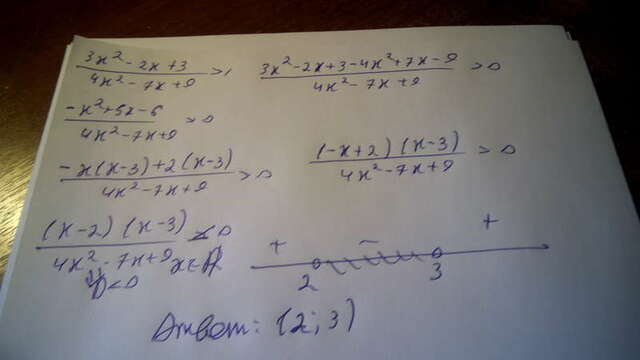 (3x² - 2x + 3)/(4x² - 7x + 9) > 1    (3x² - 2x + 3 - 4x² + 7x - 9)/(4x² - 7x + 9) > 0
(-x² + 5x - 6)/(4x² - 7x + 9) > 0
(-x(x-3) + 2(x-3))/(4x² - 7x + 9) > 0    ((-x+2)(x-3))/(4x² - 7x + 9) > 0
((x-2)(x-3))/(4x² - 7x + 9) < 0    + - +
x∈R    2 3
D<0
Ответ: (2; 3)